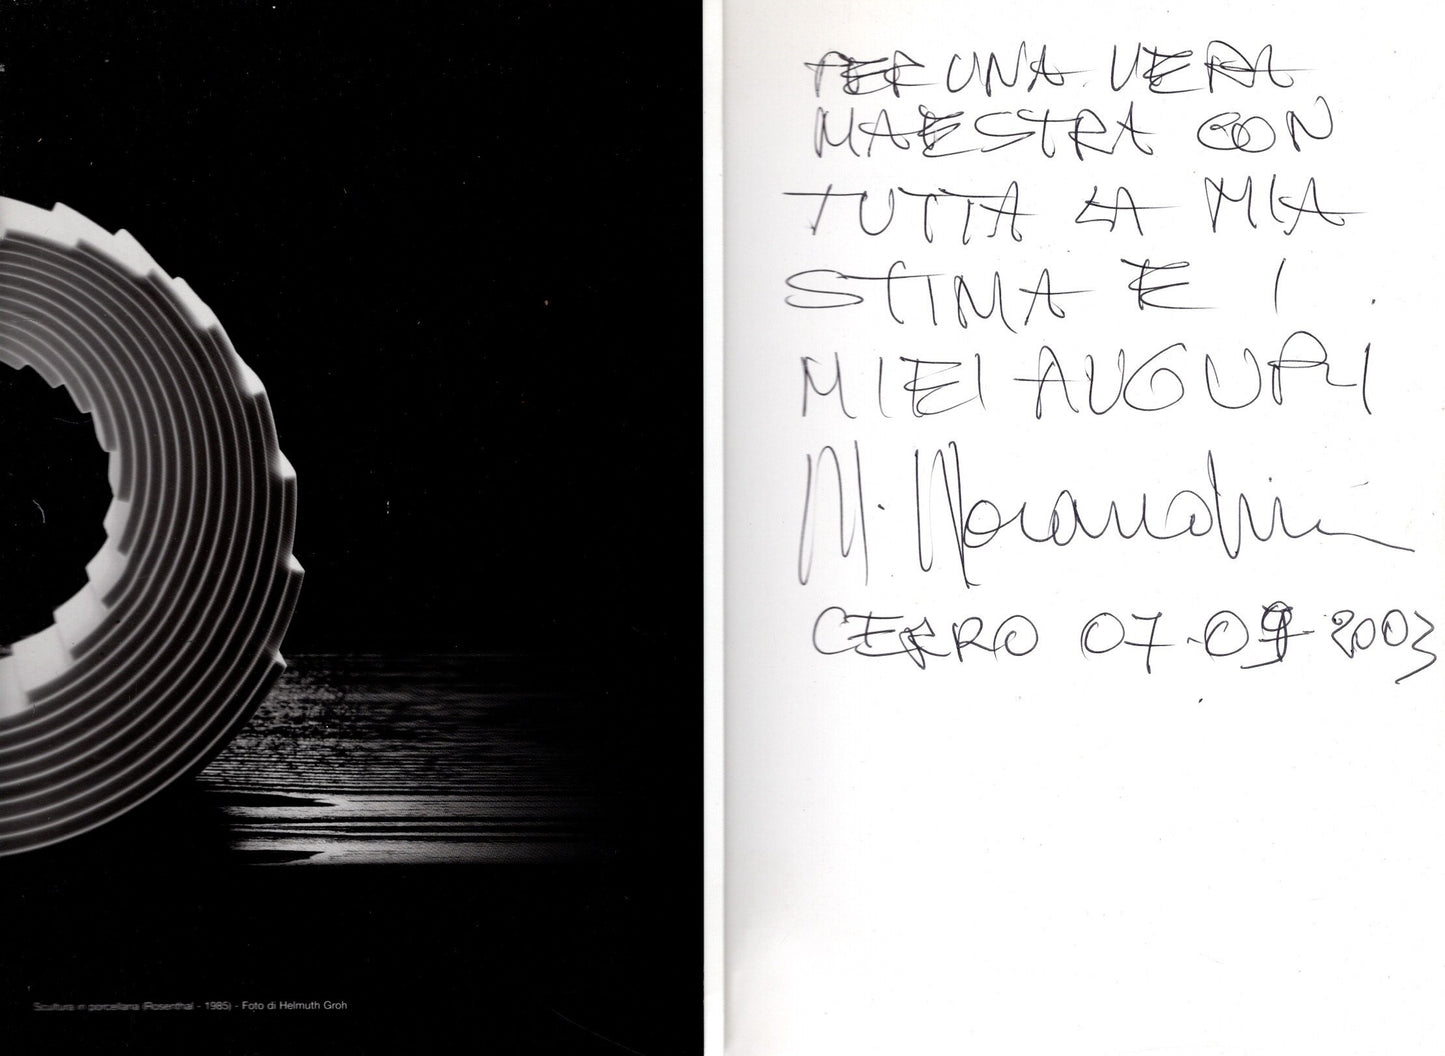 Scultura in porcellana (Rosenthal - 1985) - Foto di Helmuth Groh
PER UNA VERA
MAESTRA CON
TUTTA LA MIA
STIMA E I
MIEI AUGURI
M. Morandini
CERRO 07-09-2003